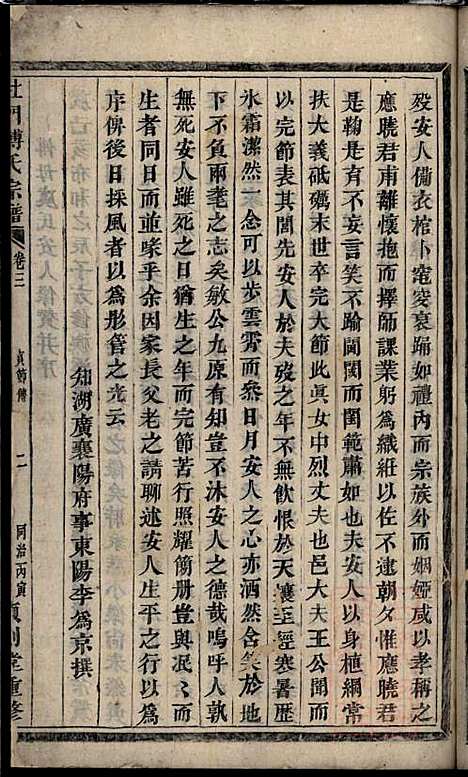 歿安人備衣棺卜窀穸哀踊如禮內而宗族外而姻婭咸以孝稱之
應曉君甫離懷抱而擇師課業躬為織絍以佐不逮朝夕惟應曉君
是鞠是育不妄言笑不踰閫閾而閨範肅如也安人以身植綱常
扶大義砥礪末世卒完大節此真女中烈丈夫也大夫王公聞而
以完節表其閭先安人於夫歿之年無飲恨於天壤至經寒暑歷
氷霜潔然一念可以步雲霄而叅日月安人之心亦洒然含笑於地
下不負兩耄之志矣敏公九原有知豈不沐安人之德哉嗚呼人孰
無死安人雖死之日猶生之年而完節苦行照耀簡册豈與泯泯
生者同日而並喙乎余因家長父老之請聊述安人生平之行以為
序俾後日採風者以為彤管之光云
知湖廣襄陽府事東陽李為京撰
杜門傅氏宗譜 卷三 貞節傳 二 同治丙寅 堂重修